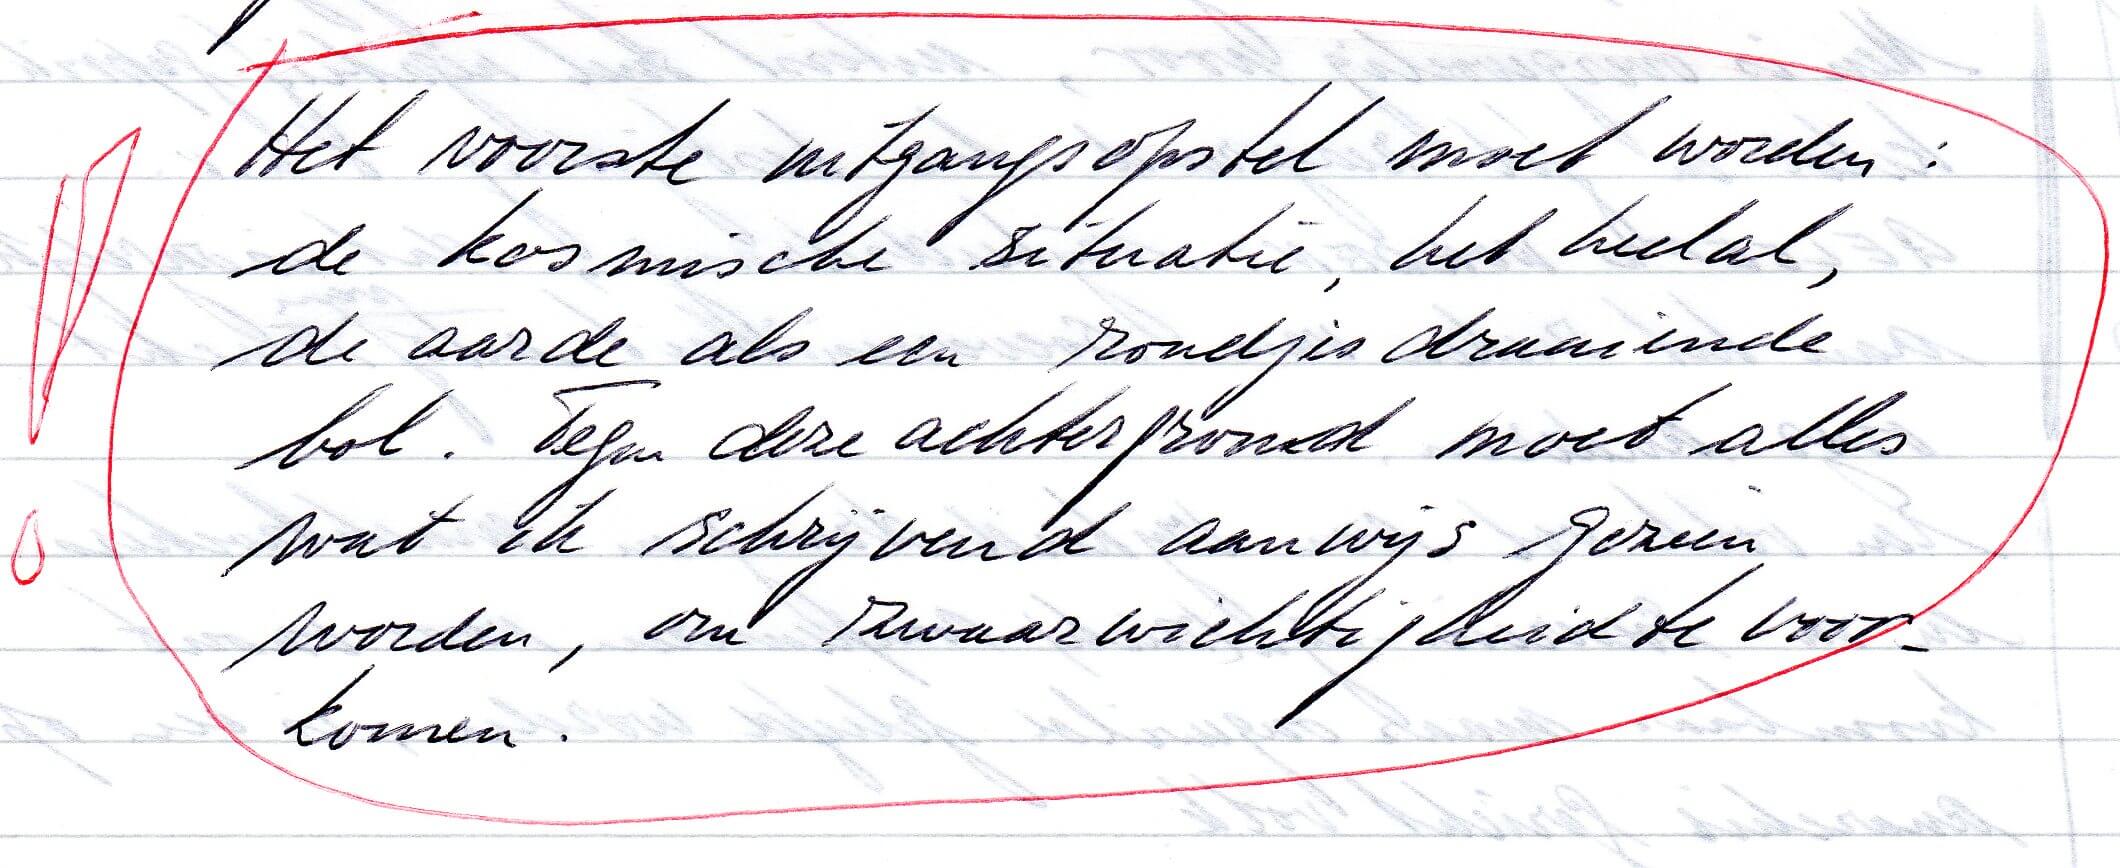 Het voorste uitgangsopstel moet worden:
de kosmische situatie, het heelal,
de aarde als een rondjes draaiende
bol. Tegen deze achtergrond moet alles
wat ik schrijvend aanwijs gezien
worden, om zwaarwichtigheid te voor-
komen.